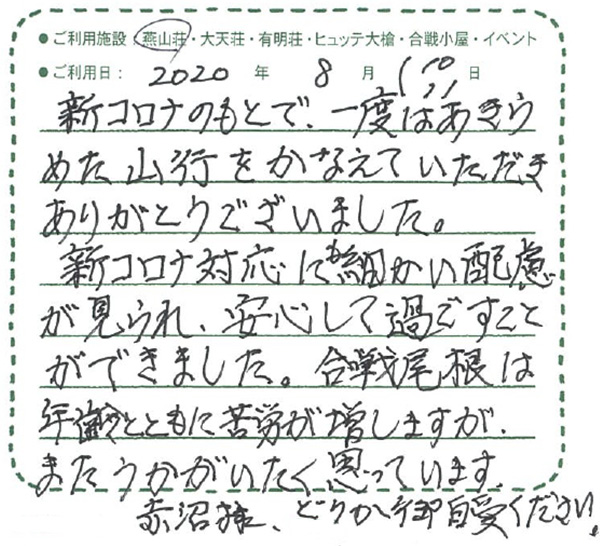 ●ご利用施設:燕山荘・大天荘・有明荘・ヒュッテ大槍・合戦小屋・イベント
●ご利用日: 2020 年 8 月 10, 11 日
新コロナのもとで、一度はあきら
めた山行をかなえていただき
ありがとうございました。
新コロナ対応にも細かい配慮
が見られ、安心して過ごすこと
ができました。合戦尾根は
年齢とともに苦労が増しますが、
またうかがいたく思っています。
赤沼様、どうか御自愛ください。